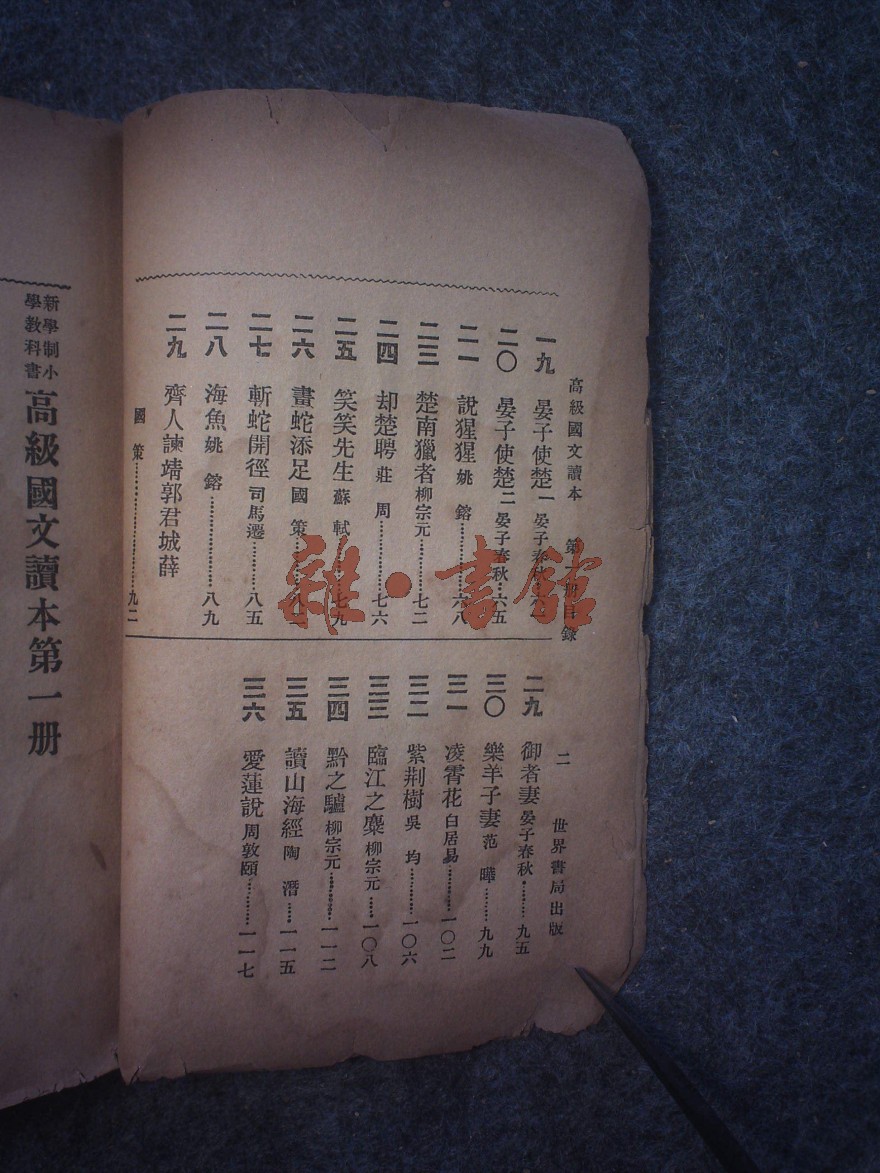 高級國文讀本 第一冊目錄 二 世界書局出版
一九 晏子使楚一 晏子春秋
二〇 晏子使楚二 晏子春秋 六五
二一 說猩猩 姚鎔 六八
二三 楚南獵者 柳宗元 七二
二四 却楚聘 莊周 七六
二五 笑笑先生 蘇軾 七九
二六 畫蛇添足 國策
二七 斬蛇開徑 司馬遷 八五
二八 海魚 姚鎔 八九
二九 齊人諫靖郭君城薛
國策 九二
二九 御者妻 晏子春秋 九五
三〇 樂羊子妻 范曄 九九
三一 凌霄花 白居易 一〇二
三二 紫荆樹 吳均 一〇六
三三 臨江之麋 柳宗元 一〇八
三四 黔之驢 柳宗元 一一二
三五 讀山海經 陶潛 一一五
三六 愛蓮說 周敦頤 一一七
新學制小學教科書 高級國文讀本第一册
雜·書館